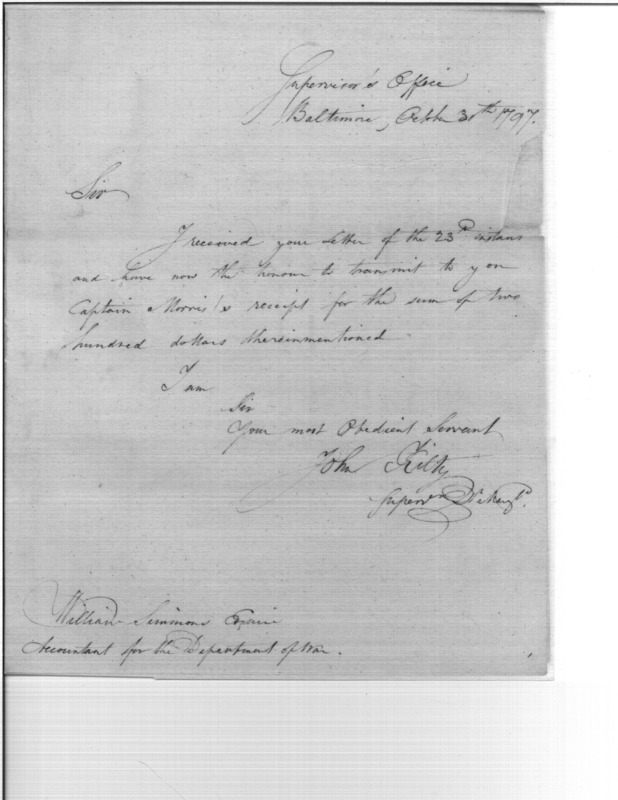 Supervisor's Office
Baltimore, October 30th 1797.
Sir
I received your Letter of the 23d instant
and have now the honour to transmit to you
Captain Morris's receipt for the sum of two
hundred dollars therein mentioned
I am
Sir
Your most Obedient Servant
John Kilty
Supervr
William Simmons Esquire
Accountant for the Department of War.